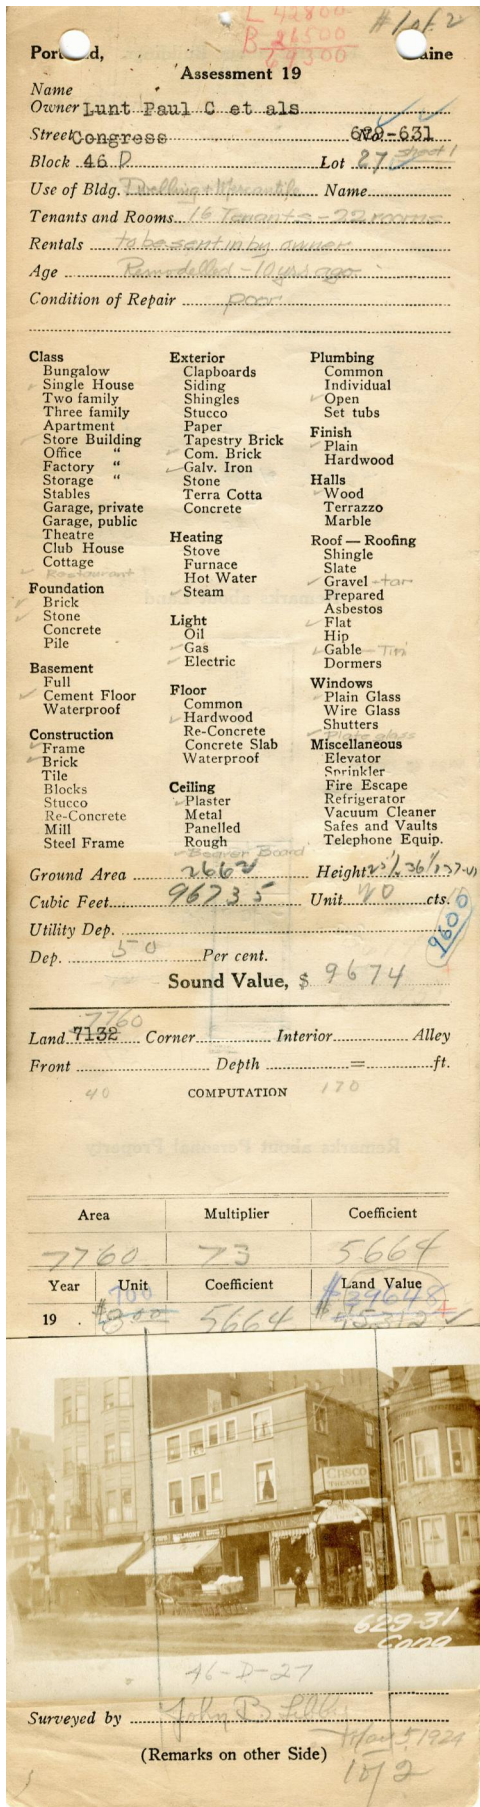 L 42800
B 26500
69300
#1 of 2
Portland, Maine
Assessment 19
Name
Owner Lunt Paul C et als
Street Congress No. 629-631
Block 46 D Lot 27 sheet 1
Use of Bldg. Dwelling + Mercantile Name
Tenants and Rooms 16 Tenants - 22 rooms
Rentals to be sent in by owner
Age Remodelled - 10 yrs ago
Condition of Repair poor
Class
Bungalow
Single House
Two family
Three family
Apartment
Store Building
Office "
Factory "
Storage "
Stables
Garage, private
Garage, public
Theatre
Club House
Cottage
Restaurant
Foundation
Brick
Stone
Concrete
Pile
Basement
Full
Cement Floor
Waterproof
Construction
Frame
Brick
Tile
Blocks
Stucco
Re-Concrete
Mill
Steel Frame
Exterior
Clapboards
Siding
Shingles
Stucco
Paper
Tapestry Brick
Com. Brick
Galv. Iron
Stone
Terra Cotta
Concrete
Heating
Stove
Furnace
Hot Water
Steam
Light
Oil
Gas
Electric
Floor
Common
Hardwood
Re-Concrete
Concrete Slab
Waterproof
Ceiling
Plaster
Metal
Panelled
Rough
Beaver Board
Plumbing
Common
Individual
Open
Set tubs
Finish
Plain
Hardwood
Halls
Wood
Terrazzo
Marble
Roof — Roofing
Shingle
Slate
Gravel - tar
Prepared
Asbestos
Flat
Hip
Gable - Tin
Dormers
Windows
Plain Glass
Wire Glass
Shutters
Plate glass
Miscellaneous
Elevator
Sprinkler
Fire Escape
Refrigerator
Vacuum Cleaner
Safes and Vaults
Telephone Equip.
Ground Area 2662 Height
Cubic Feet 96735 Unit 20 cts.
Utility Dep.
9600
Dep. 50 Per cent.
Sound Value, $ 9674
7760
Land 7132 Corner Interior Alley
Front Depth = ft.
40 COMPUTATION 170
Area Multiplier Coefficient
7760 73 5664
Year Unit Coefficient Land Value
700 $39648
19 $800 5664 $45312
CASCO
THEATRE
BELMONT
629-31
Cong
46-D-27
Surveyed by John B Libby
May 5 1924
(Remarks on other Side)
1 of 2